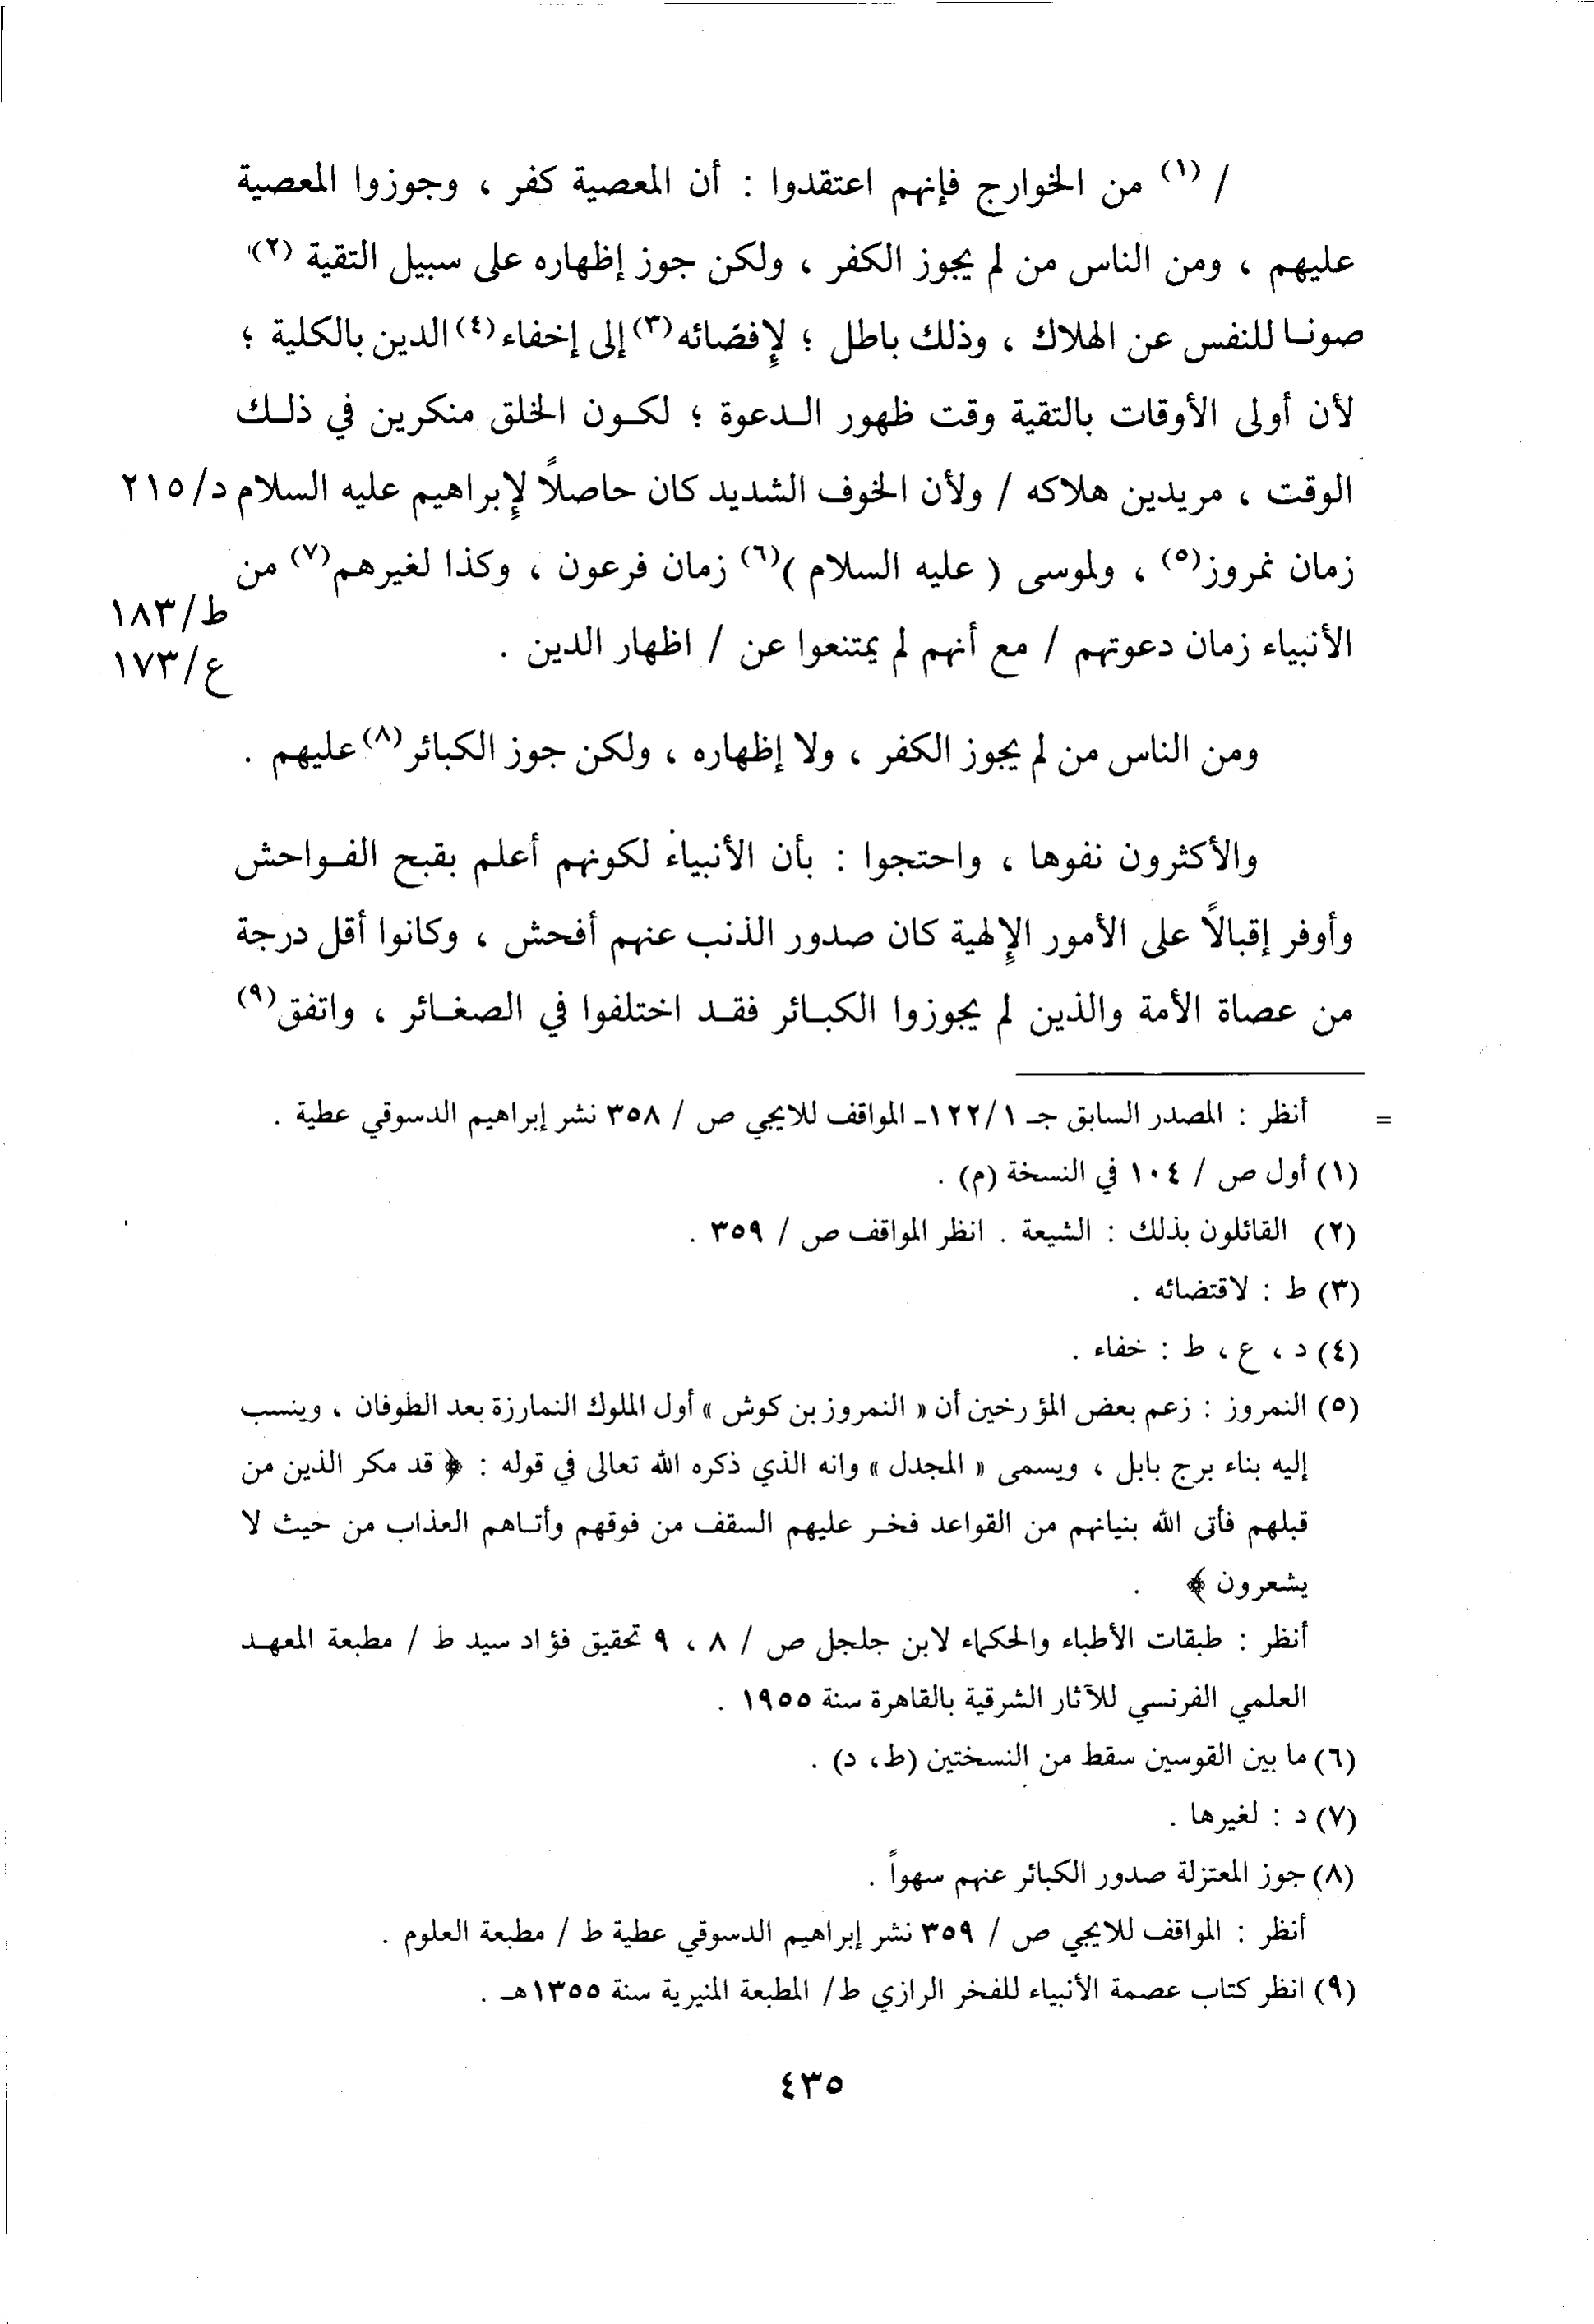 / (١) من الخوارج فإنهم اعتقدوا : أن المعصية كفر ، وجوزوا المعصية
عليهم ، ومن الناس من لم يجوز الكفر ، ولكن جوز إظهاره على سبيل التقية (٢)
صونا للنفس عن الهلاك ، وذلك باطل ؛ لإفضائه(٣) إلى إخفاء(٤) الدين بالكلية ؛
لأن أولى الأوقات بالتقية وقت ظهور الدعوة ؛ لكون الخلق منكرين في ذلك
الوقت ، مريدين هلاكه / ولأن الخوف الشديد كان حاصلاً لإبراهيم عليه السلام د/٢١٥
زمان نمروز(٥) ، ولموسى ( عليه السلام )(٦) زمان فرعون ، وكذا لغيرهم(٧) من
ط/١٨٣
الأنبياء زمان دعوتهم / مع أنهم لم يمتنعوا عن / اظهار الدين .
ع/١٧٣
ومن الناس من لم يجوز الكفر ، ولا إظهاره ، ولكن جوز الكبائر(٨) عليهم .
والأكثرون نفوها ، واحتجوا : بأن الأنبياء لكونهم أعلم بقبح الفواحش
وأوفر إقبالاً على الأمور الإلهية كان صدور الذنب عنهم أفحش ، وكانوا أقل درجة
من عصاة الأمة والذين لم يجوزوا الكبائر فقد اختلفوا في الصغائر ، واتفق(٩)
= أنظر : المصدر السابق جـ ١٢٢/١ـ المواقف للايجي ص / ٣٥٨ نشر إبراهيم الدسوقي عطية .
(١) أول ص / ١٠٤ في النسخة (م) .
(٢) القائلون بذلك : الشيعة . انظر المواقف ص / ٣٥٩ .
(٣) ط : لاقتضائه .
(٤) د ، ع ، ط : خفاء .
(٥) النمروز : زعم بعض المؤرخين أن « النمروز بن كوش » أول الملوك النمارزة بعد الطوفان ، وينسب
إليه بناء برج بابل ، ويسمى « المجدل » وانه الذي ذكره الله تعالى في قوله : ﴿ قد مكر الذين من
قبلهم فأتى الله بنيانهم من القواعد فخر عليهم السقف من فوقهم وأتاهم العذاب من حيث لا
يشعرون ﴾ .
أنظر : طبقات الأطباء والحكماء لابن جلجل ص / ٨ ، ٩ تحقيق فؤاد سيد ط / مطبعة المعهد
العلمي الفرنسي للآثار الشرقية بالقاهرة سنة ١٩٥٥ .
(٦) ما بين القوسين سقط من النسختين (ط، د) .
(٧) د : لغيرها .
(٨) جوز المعتزلة صدور الكبائر عنهم سهواً .
أنظر : المواقف للايجي ص / ٣٥٩ نشر إبراهيم الدسوقي عطية ط / مطبعة العلوم .
(٩) انظر كتاب عصمة الأنبياء للفخر الرازي ط/ المطبعة المنيرية سنة ١٣٥٥هـ .
٤٣٥